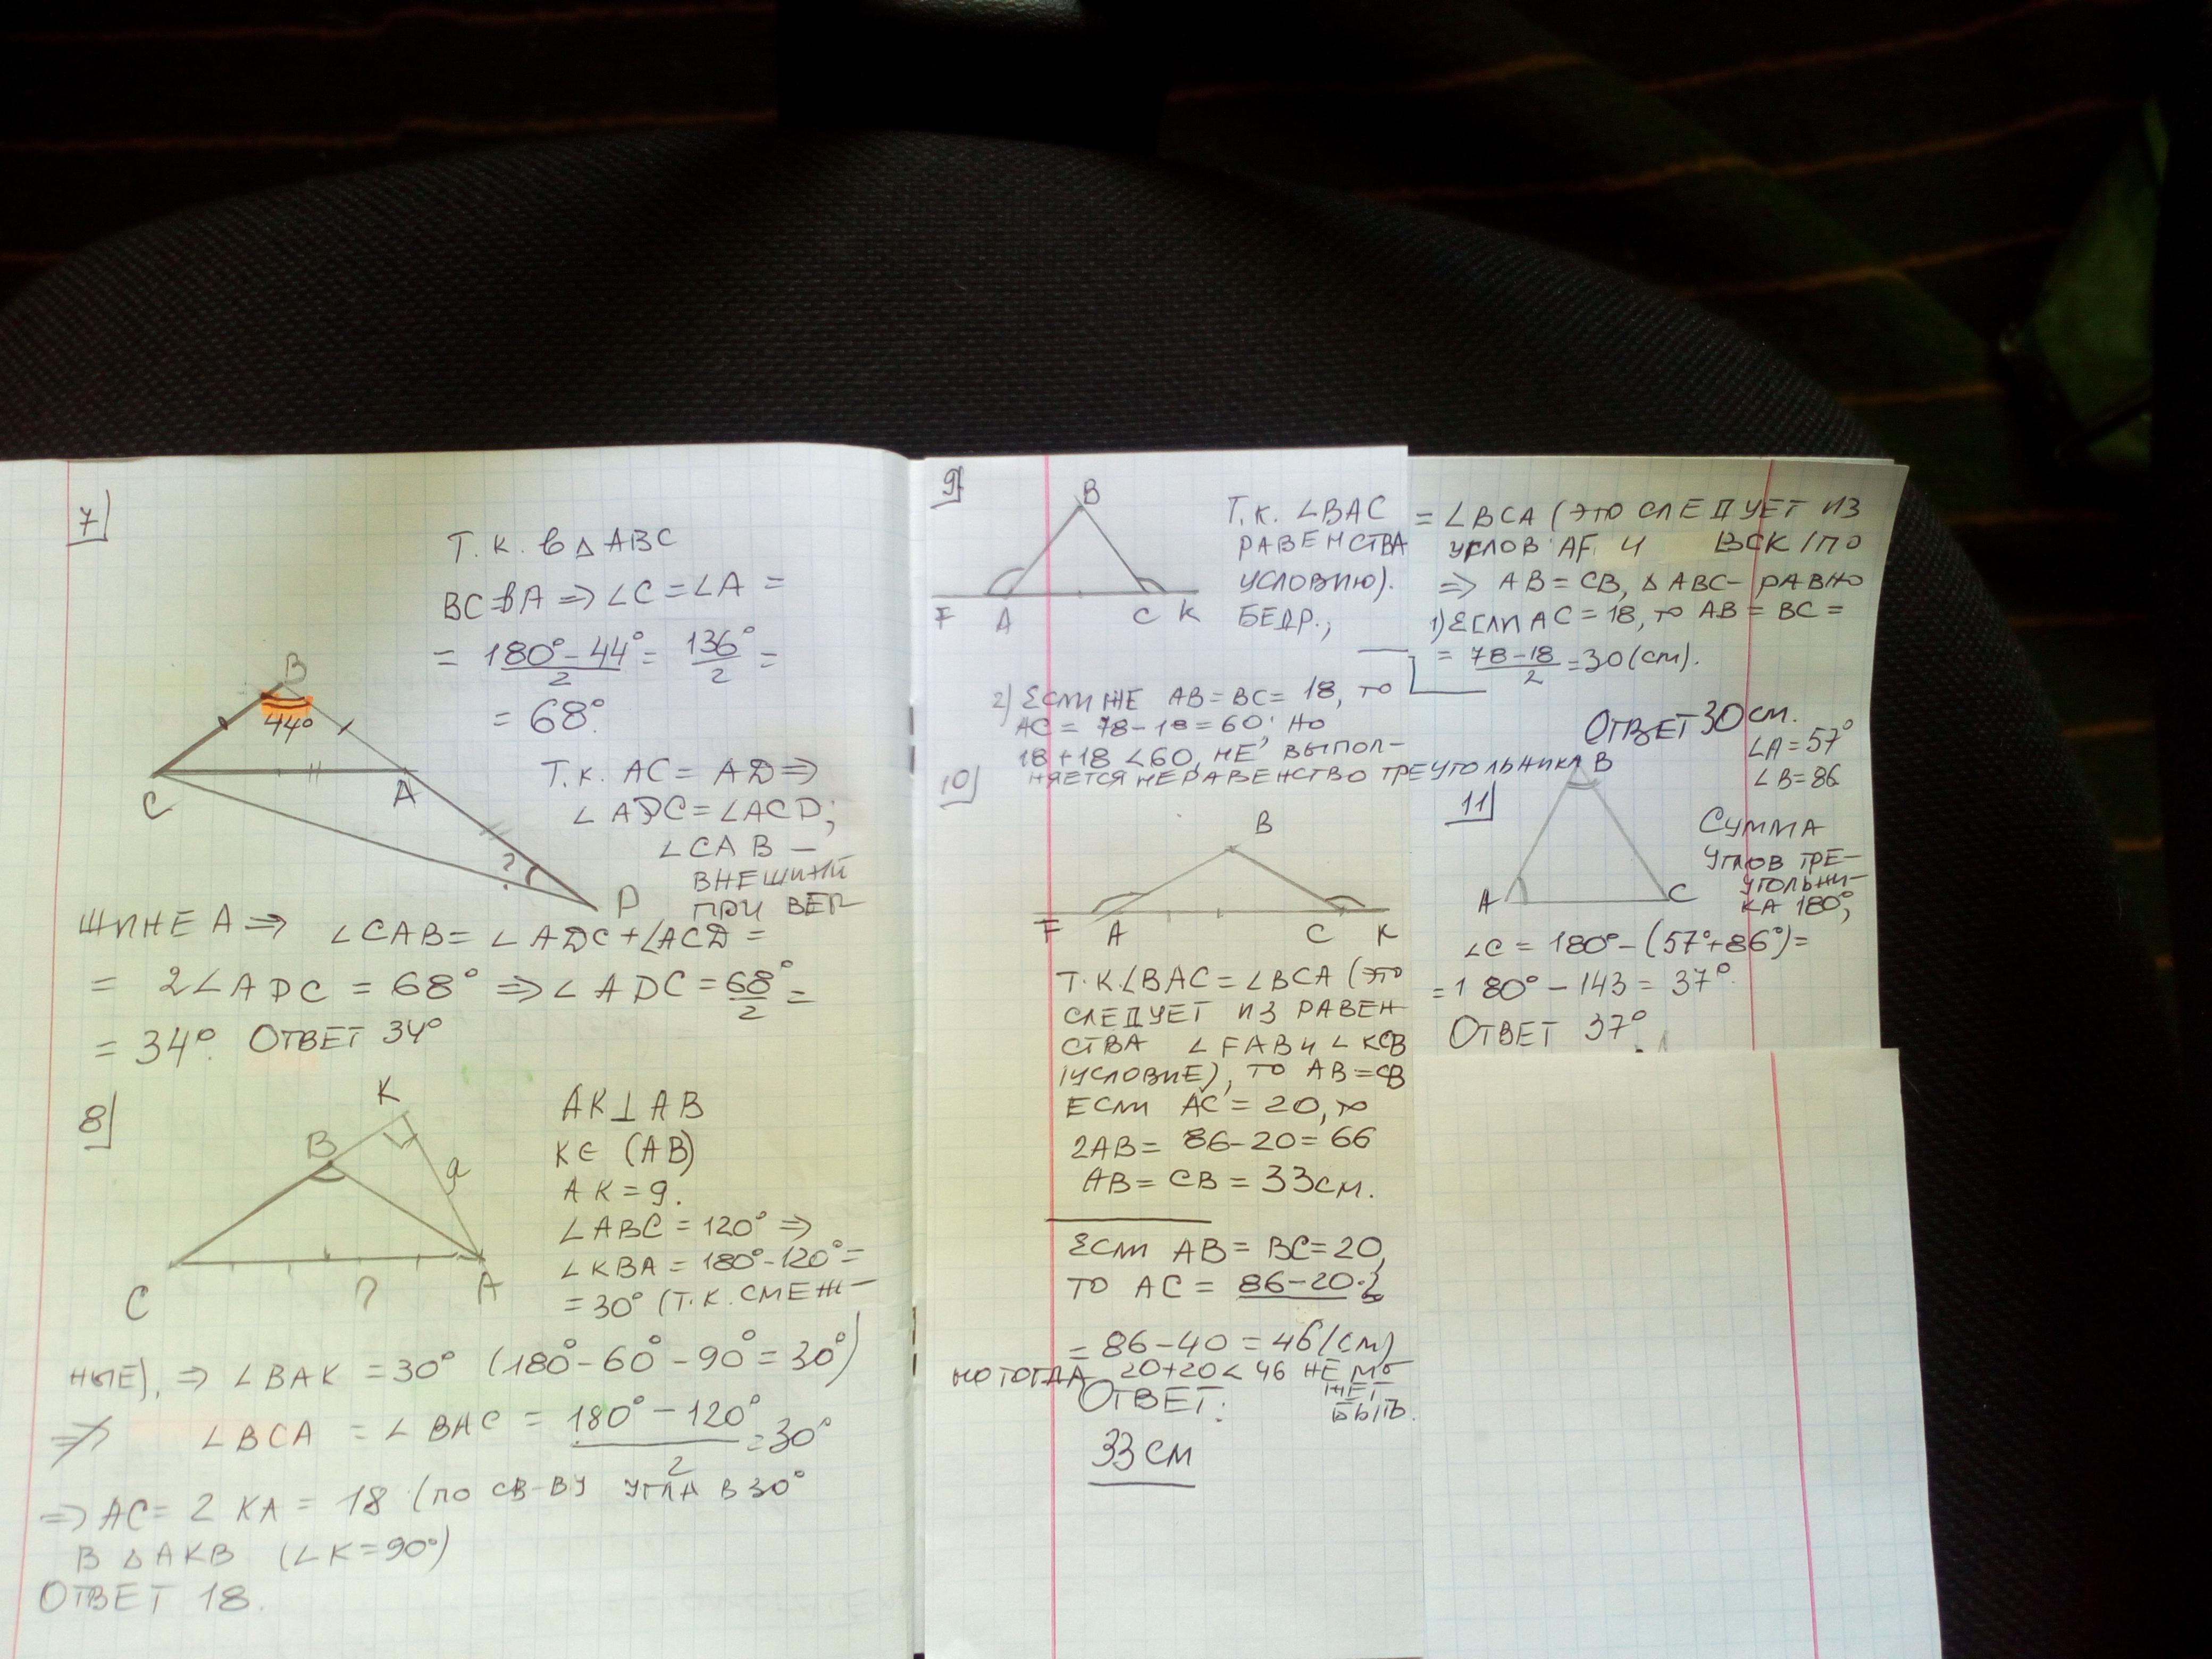 7)
Т.К. В △ ABC
BC=BA ⇒ ∠C = ∠A =
= 180° - 44° / 2 = 136° / 2 =
= 68°.
B
44°
C
A
?
D
Т.К. AC = AD ⇒
∠ADC = ∠ACD;
∠CAB —
ВНЕШНИЙ
ПРИ ВЕР-
ШИНЕ A ⇒ ∠CAB = ∠ADC + ∠ACD =
= 2∠ADC = 68° ⇒ ∠ADC = 68° / 2 =
= 34°. ОТВЕТ 34°
8)
K
B
9
C
?
A
AK ⊥ AB
K ∈ (AB)
AK = 9.
∠ABC = 120° ⇒
∠KBA = 180° - 120° =
= 30° (Т.К. СМЕЖ-
НЫЕ), ⇒ ∠BAK = 30° (180° - 60° - 90° = 30°)
⇒ ∠BCA = ∠BAC = 180° - 120° / 2 = 30°
⇒ AC = 2 KA = 18 (ПО СВ-ВУ УГЛА В 30°
В △ AKB (∠K = 90°)
ОТВЕТ 18.
9)
B
F A C K
Т.К. ∠BAC = ∠BCA (ЭТО СЛЕДУЕТ ИЗ
РАВЕНСТВА УГЛОВ AF И BCK (ПО
УСЛОВИЮ). ⇒ AB = CB, △ ABC - РАВНО
БЕДР.; 1) ЕСЛИ AC = 18, ТО AB = BC =
= 78-18 / 2 = 30 (см).
2) ЕСЛИ ЖЕ AB = BC = 18, ТО
AC = 78 - 18 = 60; НО
18 + 18 < 60, НЕ ВЫПОЛ-
НЯЕТСЯ НЕРАВЕНСТВО ТРЕУГОЛЬНИКА
ОТВЕТ 30 см.
10)
B
F A C K
Т.К. ∠BAC = ∠BCA (ЭТО
СЛЕДУЕТ ИЗ РАВЕН
СТВА ∠FAB И ∠KCB
(УСЛОВИЕ), ТО AB = CB
ЕСЛИ AC = 20, ТО
2AB = 86 - 20 = 66
AB = CB = 33 см.
ЕСЛИ AB = BC = 20,
ТО AC = 86 - 20·2
= 86 - 40 = 46 (см)
НО ТОГДА 20 + 20 < 46 НЕ МО
ЖЕТ
БЫТЬ.
ОТВЕТ:
33 см
11)
B
A C
∠A = 57°
∠B = 86
СУММА
УГЛОВ ТРЕ-
УГОЛЬНИ-
КА 180°;
∠C = 180° - (57° + 86°) =
= 180° - 143 = 37°.
ОТВЕТ 37°.